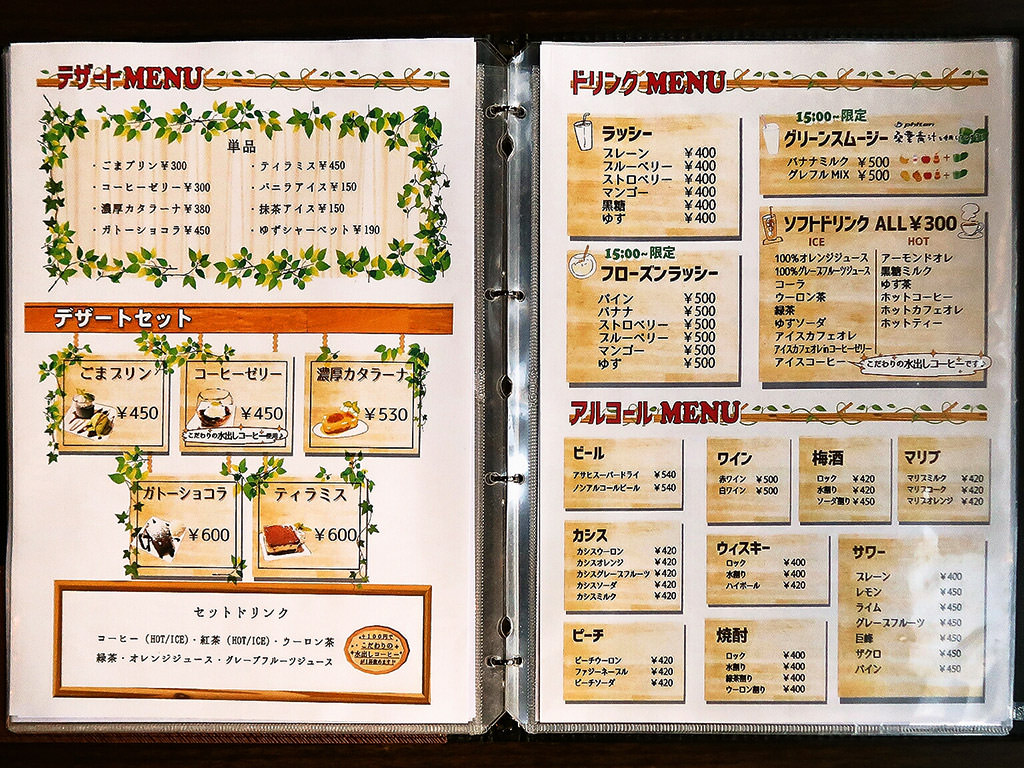 デザートMENU
単品
・ごまプリン￥300
・ティラミス￥450
・コーヒーゼリー￥300
・バニラアイス￥150
・濃厚カタラーナ￥380
・抹茶アイス￥150
・ガトーショコラ￥450
・ゆずシャーベット￥190
デザートセット
ごまプリン
￥450
コーヒーゼリー
￥450
こだわりの水出しコーヒー使用♪
濃厚カタラーナ
￥530
ガトーショコラ
￥600
ティラミス
￥600
セットドリンク
コーヒー（HOT/ICE）・紅茶（HOT/ICE）・ウーロン茶
緑茶・オレンジジュース・グレープフルーツジュース
+100円で
こだわりの
水出しコーヒー
が1杯飲めます!!
ドリンクMENU
ラッシー
プレーン ￥400
ブルーベリー ￥400
ストロベリー ￥400
マンゴー ￥400
黒糖 ￥400
ゆず ￥400
15:00~限定
フローズンラッシー
パイン ￥500
バナナ ￥500
ストロベリー ￥500
ブルーベリー ￥500
マンゴー ￥500
ゆず ￥500
15:00~限定
phiten
グリーンスムージー
バナナミルク ￥500
グレフルMIX ￥500
ソフトドリンク ALL￥300
ICE
100%オレンジジュース
100%グレープフルーツジュース
コーラ
ウーロン茶
緑茶
ゆずソーダ
アイスカフェオレ
アイスカフェオレinコーヒーゼリー
アイスコーヒー
こだわりの水出しコーヒーです♪
HOT
アーモンドオレ
黒糖ミルク
ゆず茶
ホットコーヒー
ホットカフェオレ
ホットティー
アルコールMENU
ビール
アサヒスーパードライ ￥540
ノンアルコールビール ￥540
ワイン
赤ワイン ￥500
白ワイン ￥500
梅酒
ロック ￥420
水割り ￥420
ソーダ割り ￥450
マリブ
マリブミルク ￥420
マリブコーク ￥420
マリブオレンジ ￥420
カシス
カシスウーロン ￥420
カシスオレンジ ￥420
カシスグレープフルーツ ￥420
カシスソーダ ￥420
カシスミルク ￥420
ウィスキー
ロック ￥400
水割り ￥400
ハイボール ￥420
サワー
プレーン ￥400
レモン ￥450
ライム ￥450
グレープフルーツ ￥450
巨峰 ￥450
ザクロ ￥450
パイン ￥450
ピーチ
ピーチウーロン ￥420
ファジーネーブル ￥420
ピーチソーダ ￥420
焼酎
ロック ￥400
水割り ￥400
緑茶割り ￥400
ウーロン割り ￥400